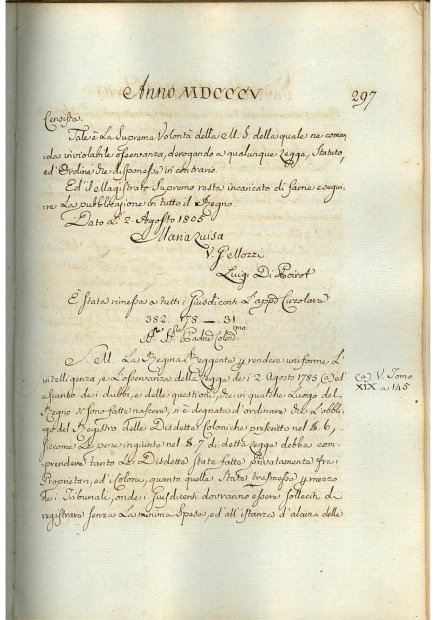 Anno MDCCCV.
297
Censista.
Tale è La Suprema Volontà della M. S. della quale ne coman
da inviolabile osservanza, derogando a qualunque Legge, Statuto,
ed Ordine che disponesse in contrario.
Ed il Magistrato Supremo resta incaricato di farne esegui
re La pubblicazione in tutto il Regno.
Dato Li 2 Agosto 1805
Maria Luisa
V. Gellozzi
Luigi Di Poirot
È stata rimessa a tutti i Giusdicenti L'app.
Circolare
382 178 — 31
Padroe Colend.mo
S. M. La Regina Reggente p rendere uniforme L'in
telligenza, e L'osservanza della Legge de i 2 Agosto 1785 (a) ed
a scanso de i dubbi, e delle questioni, che in qualche Luogo del
Regno si sono fatte nascere, si è degnata d'ordinare che L'obbli
go del Registro delle Disdette Coloniche prescritto nel §. 6,
siccome Le pene ingiunte nel §. 7 di detta Legge debba com
prendere tanto Le Disdette state fatte privatamente fra i
Proprietarj, ed i Coloni, quanto quelle State trasmesse p mezzo
de i Tribunali, onde i Giusdicenti dovranno essere solleciti di
registrare senza La minima Spesa, ed all'istanza d'alcuna delle
(a) V. Tomo
XIX a 145